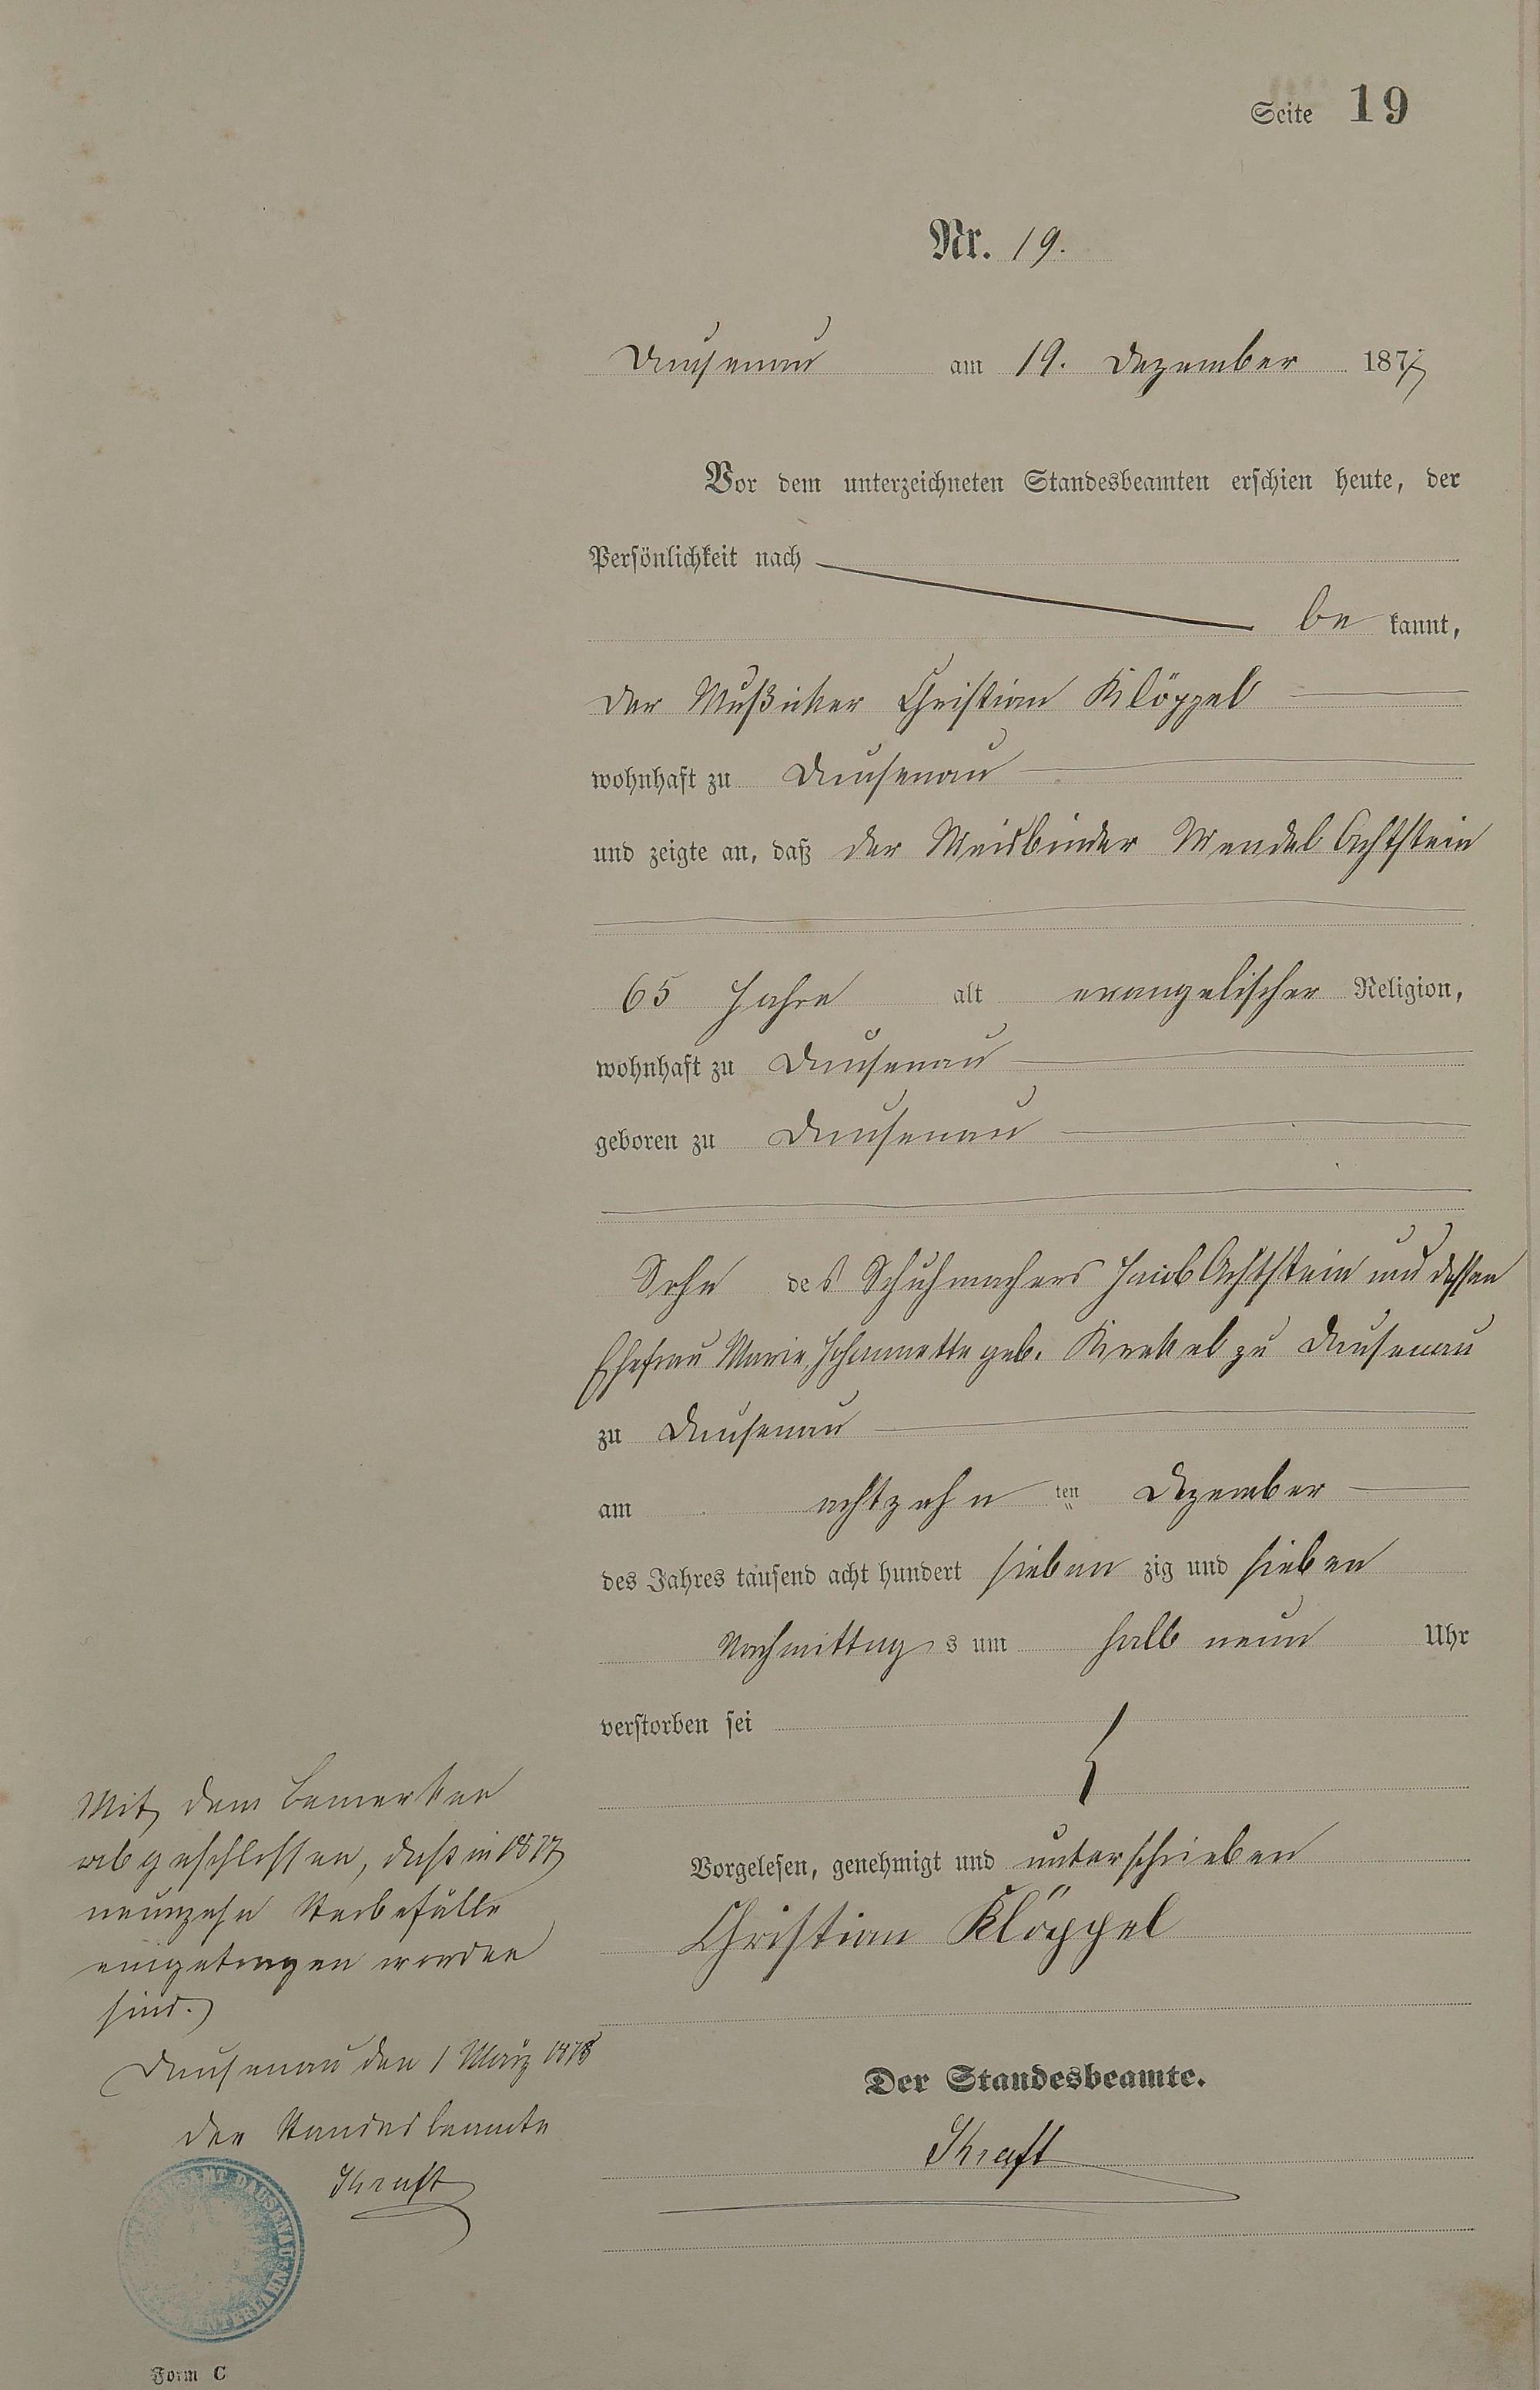 Seite 19
Nr. 19.
Dausenau am 19. Dezember 1877
Vor dem unterzeichneten Standesbeamten erschien heute, der
Persönlichkeit nach
be kannt,
der Mußiker Christian Klöppel
wohnhaft zu Dausenau
und zeigte an, daß der Weisbinder Wendel Achtstein
65 Jahre alt evangelischer Religion,
wohnhaft zu Dausenau
geboren zu Dausenau
Sohn des Schuhmachers Jacob Achtstein und dessen
Ehefrau Marie Johannette geb. Krekel zu Dausenau
zu Dausenau
am achtzehn ten Dezember
des Jahres tausend acht hundert sieben zig und sieben
Nachmittag s um halb neun Uhr
verstorben sei
Vorgelesen, genehmigt und unterschrieben
Christian Klöppel
Der Standesbeamte.
Kraft
Mit dem Bemerken
abgeschlossen, daß in 1877
neunzehn Sterbefälle
eingetragen worden
sind.
Dausenau den 1 März 1878
Der Standesbeamte
Kraft
DAUSENAU
Form C